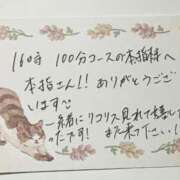 160分 100分コースの本指様へ
本指さん!! ありがとうござ
います♡
一緒にリコリス見れて嬉しか
ったです! また来て下さい!!